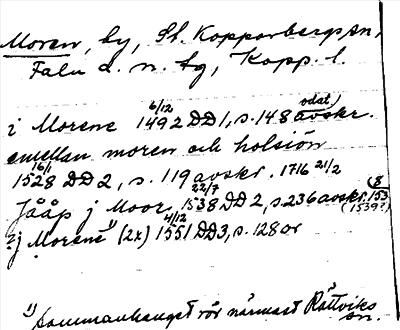 Moren, by, St. Kopparbergs sn,
Falu d. n. tg, Kopp. l.
i Morene 6/12 1492 DD1, s. 148 odat. avskr.
emellan moren och holsiön
16/1 1528 DD 2, s. 119 avskr. 1716 21/2
Jååp j Moor 22/7 1538 DD 2, s. 236 avskr. 153(8
(1539?)
?j Morene 1) (2x) 4/12 1551 DD3, s. 128 or
1) Sammanhanget rör närmast Rättviks
sn.